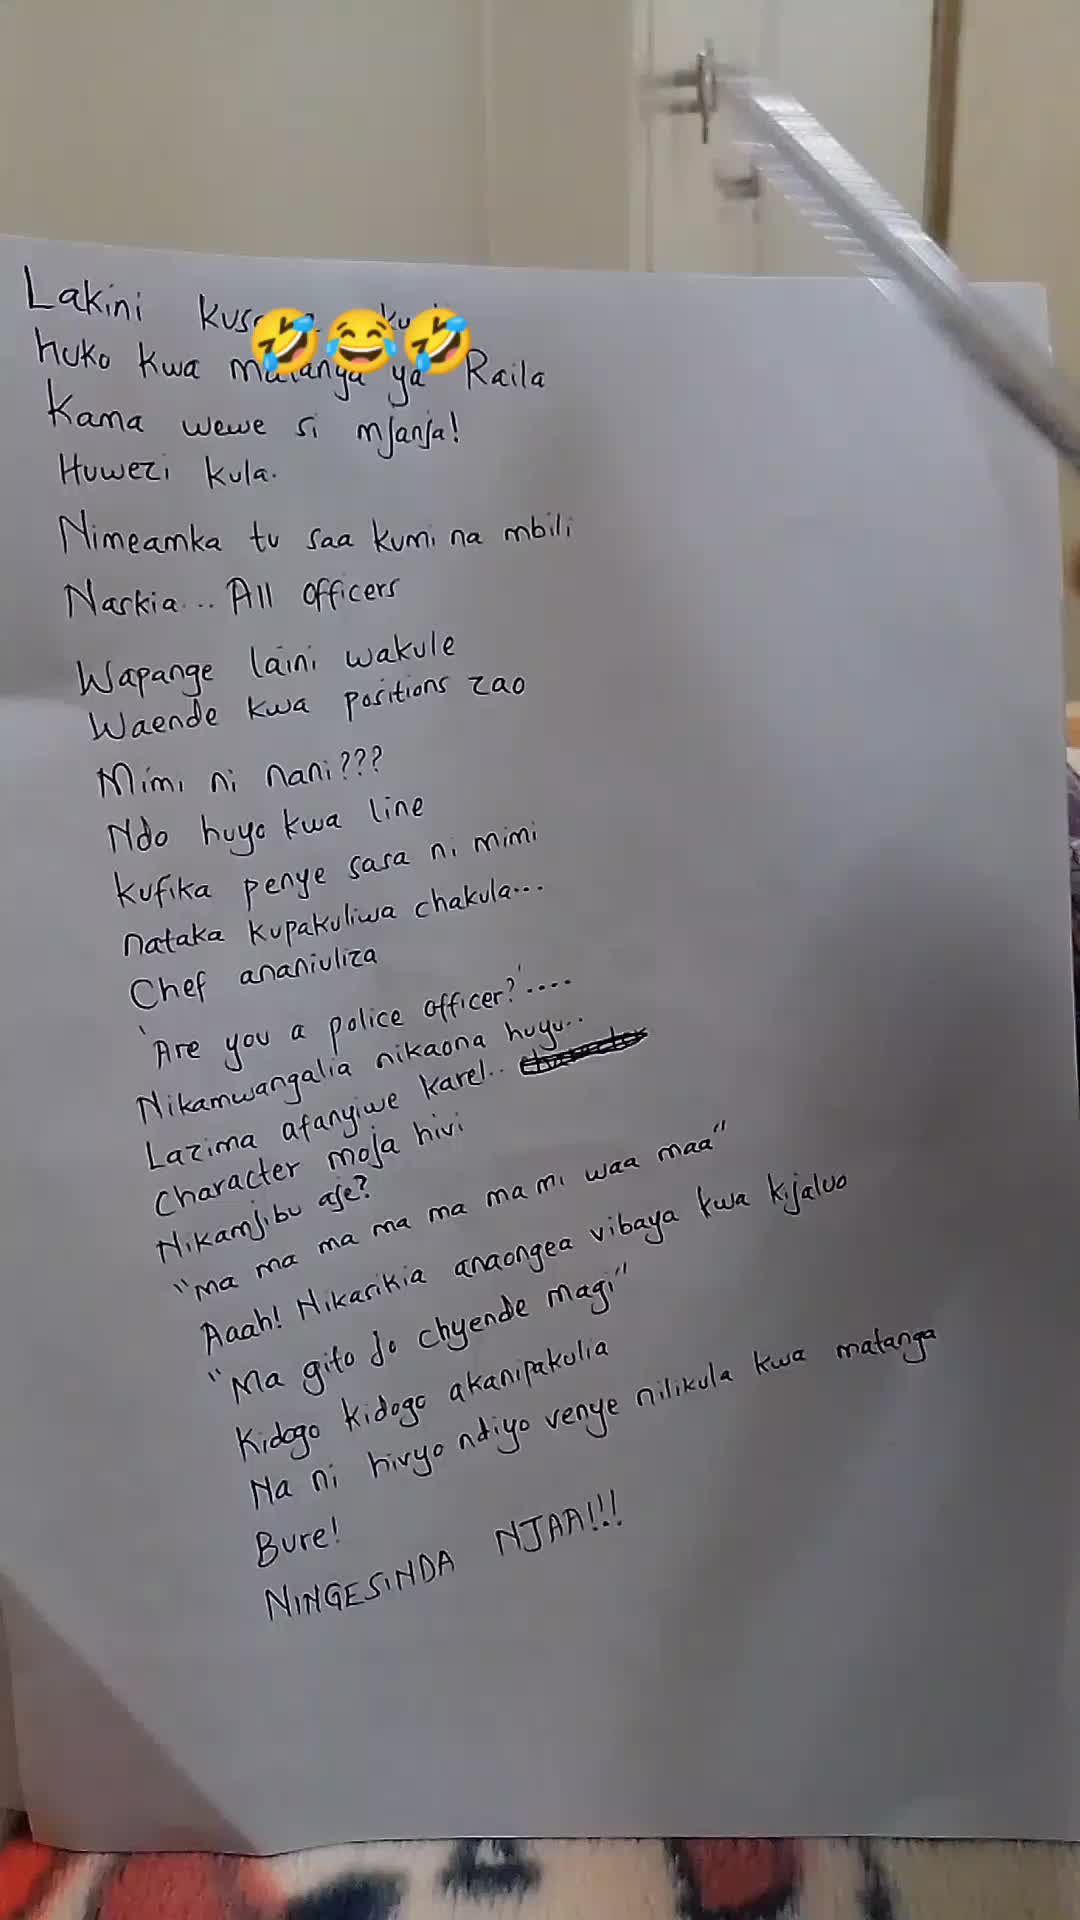 Lakini
huko kwa matanga ya Raila
Kama wewe si mjanja!
Huwezi kula.
Nimeamka tu saa kumi na mbili
Naskia... All officers
Wapange laini wakule
Waende kwa positions zao
Mimi ni nani???
Ndo huyo kwa line
Kufika penye sasa ni mimi
nataka kupakuliwa chakula...
Chef ananiuliza
'Are you a police officer?'....
Nikamwangalia nikaona huyu..
Lazima afanyiwe karel..
Character moja hivi
Nikamjibu aje?
"Ma ma ma ma ma ma mi waa maa"
Aaah! Nikasikia anaongea vibaya kwa kijaluo
"Ma gito jo chyende magi"
Kidogo kidogo akanipakulia
Na ni hivyo ndiyo venye nilikula kwa matanga
Bure!
NINGESINDA NJAA!!!